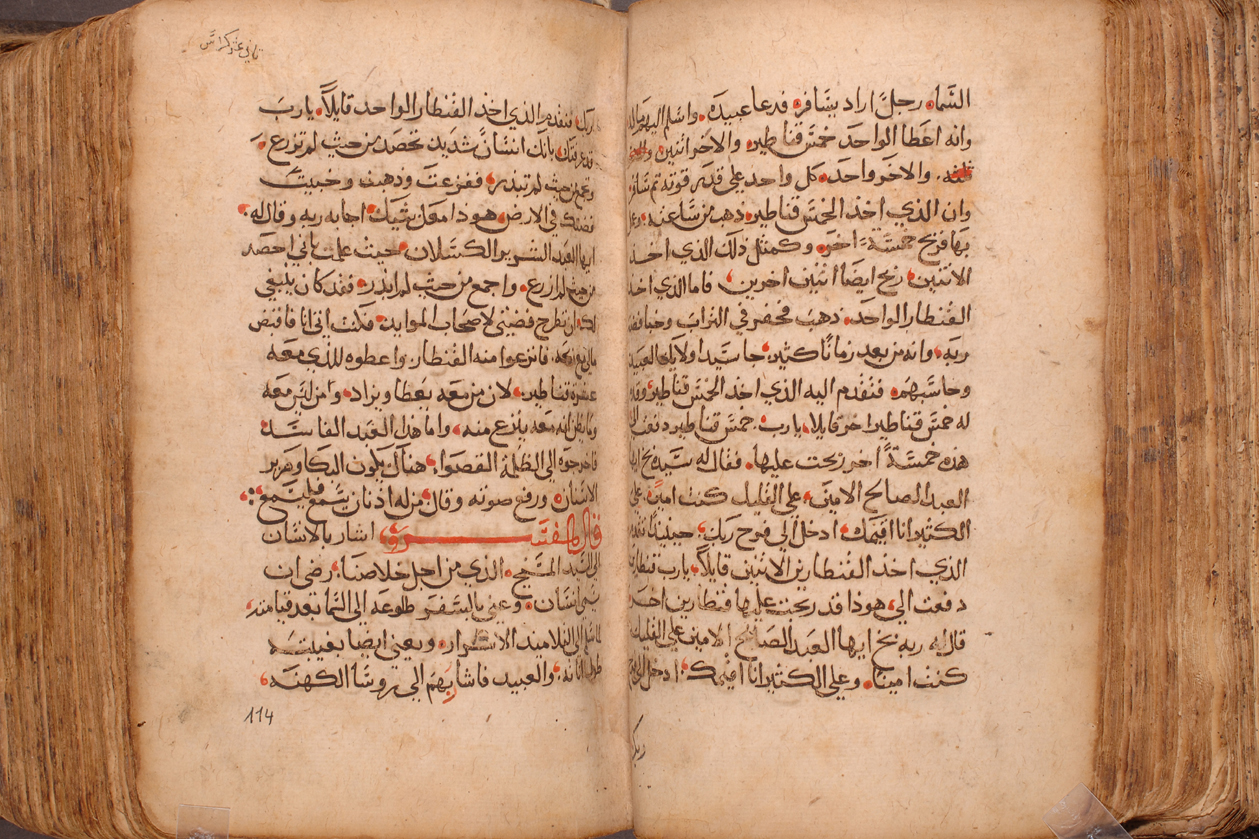 السما. رجلً اراد يسافر. فدعا عبيده. واسلم اليهم ماله
وانه اعطا الواحد خمس قناطير. والاخر اثنين.
والاخر واحد. كل واحد علي قدر قوته ثم سافر
وان الذي اخذ الخمس قناطير. ذهب من ساعته.
بها فربح خمسة اخر. وكمثل ذلك الذي اخذ
الاثنين. ربح ايضا اثنين اخرين. فاما الذي اخذ
القنطار الواحد. ذهب فحفر في التراب وخبا فضة
ربه. وانه من بعد زمانًا كثير. جا سيد اولايك العبيد
وحاسبهم. فتقدم اليه الذي اخذ الخمس قناطير
له خمس قناطير اخر قايلا. يا رب. خمس قناطير دفعت الي
هذه خمسةً اخر ربحت عليها. فقال له سيده نِخ ايها
العبد الصالح الامين. علي القليل كنت امين. علي
الكتير انا اقيمك. ادخل الي فرح ربك. حينيذٍ تقدم
الذي اخذ القنطارين الاثنين قايلاً. يا رب قنطارين
دفعت الي. هوذا قد ربحت عليها قنطارين اخر
قال له ربه نخ ايها العبد الصالح الامين علي القليل
كنت امينًا. وعلي الكتير انا اقيمك. ادخل الي
ربك
تاني عشر كراس
ربك. فتقدم الذي اخذ القنطار الواحد قايلاً. يا رب
قد عرفتك. بانك انسانً شديد تحصد من حيث لم تزرع.
وتجمع من حيث لم تبذر. ففزعت وذهبت وخبيت
فضتك في الارض. هوذا معك شيك. اجابه ربه وقال له.
ايها العبد الشرير الكسلان. حيث علمت باني احصد
من حيث لم ازرع. واجمع من حيث لم ابذر. فقد كان ينبغي
لك ان تطرح فضتي لاصحاب الموايد. فكنت اتي انا فاقبض
مالي مع ربحه. فانزعوا منه القنطار. واعطوه للذي معه
عشرة قناطير. لان من معه يعطا ويزاد. وامن ليس معه
وما يظن انه معه ينزع منه. واما هذا العبد الفاسد.
فاخرجوه الي الظلمة القصوا. هناك يكون البكا وصرير
الاسنان. ورفع صوته وقال من له اذنان يسمع فليسمع
قال المفسر اشار بالانسان
الي السيد المسيح. الذي من اجل خلاصنا. رضي ان
يسمي انسان. وعني بالسفر طلوعه الي السما بعد قيامته.
فاسلم الي التلاميد الاسرار. ويعني ايضا بغيبته
طول اناته. والعبيد فاشار بهم الي روسا الكهنه.
114